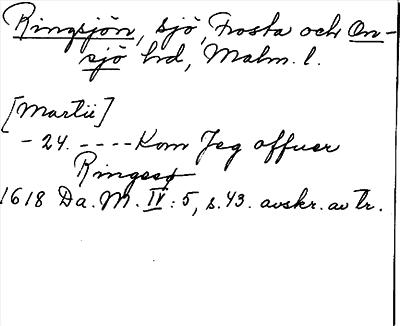 Ringsjön, sjö, Frosta och On-
sjö hd, Malm. l.
[Martii]
- 24. ---- Kom Jeg offuer
Ringssø
1618 Da. M. IV: 5, s. 43. avskr. av tr.